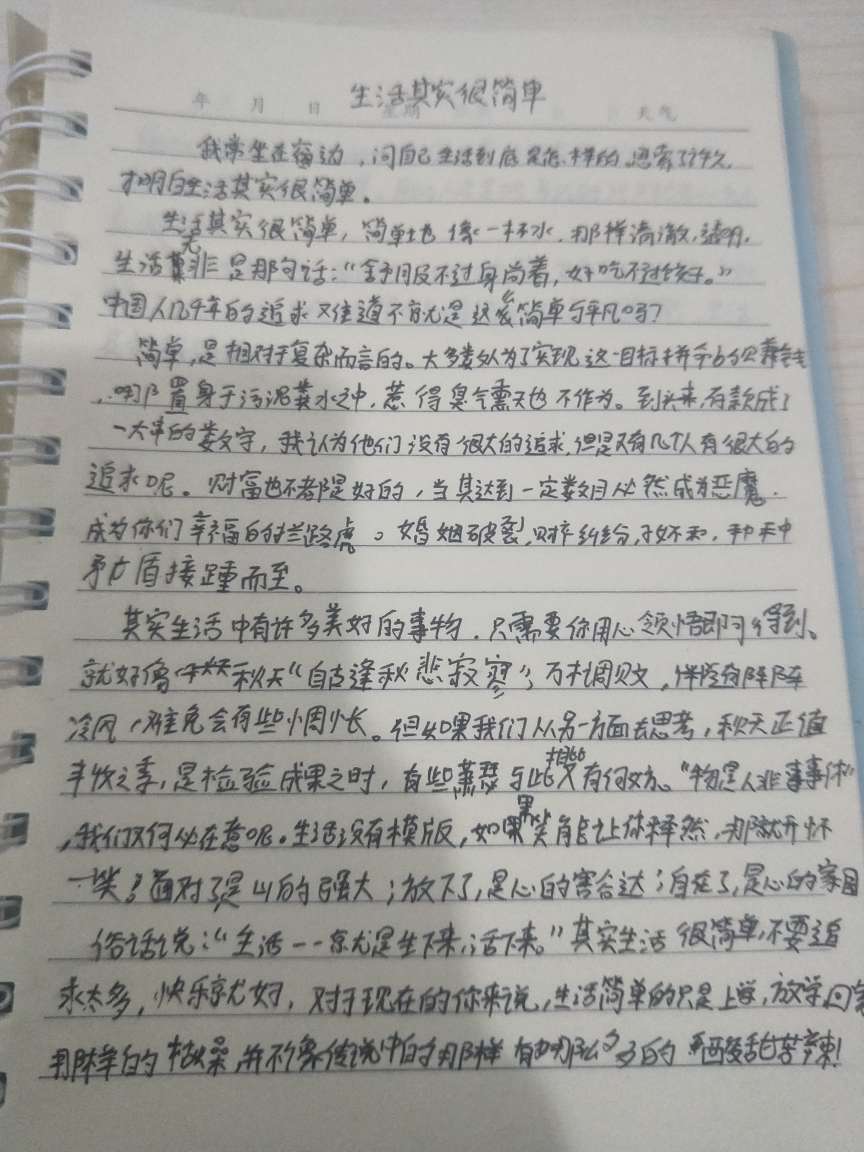 生活其实很简单
年 月 日 星期 天气
我常坐在窗边，问自己生活到底是怎样的，思索了许久
才明白生活其实很简单。
生活其实很简单，简单地像一杯水，那样清澈，透明，
生活无非是那句话：“舒服不过身尚着，好吃不过饺子。”
中国人几千年的追求又难道不就是这么简单与平凡吗？
简单，是相对于复杂而言的。大多数人为了实现这一目标拼命的
，哪怕置身于污泥粪水之中，惹得臭气熏天也不作为。到头来，存款成了
一大串的数字，我认为他们没有很大的追求，但是又有几个人有很大的
追求呢。财富也不都是好的，当其达到一定数目必然成为恶魔，
成为你们幸福的拦路虎。婚姻破裂，财产纠纷，，种种
矛盾接踵而至。
其实生活中有许多美好的事物，只需要你用心领悟即可得到、
就好像秋天“自古逢秋悲寂寥”，万木凋败，伴随着阵阵
冷风，难免会有些惆怅。但如果我们从另一方面去思考，秋天正值
丰收之季，是检验成果之时，有些萧瑟与此相比又有何妨。“物是人非事事休”
，我们又何必在意呢。生活没有模版，如果笑能让你释然，那就开怀
一笑；面对了是心的强大；放下了，是心的豁达；自在了，是心的家园
俗话说：“生活--就是生下来，活下来。”其实生活很简单，不要追
求太多，快乐就好，对于现在的你来说，生活简单的只是上学，放学回家
那样的枯燥，并不像传说中的那样有那么多的酸甜苦辣！